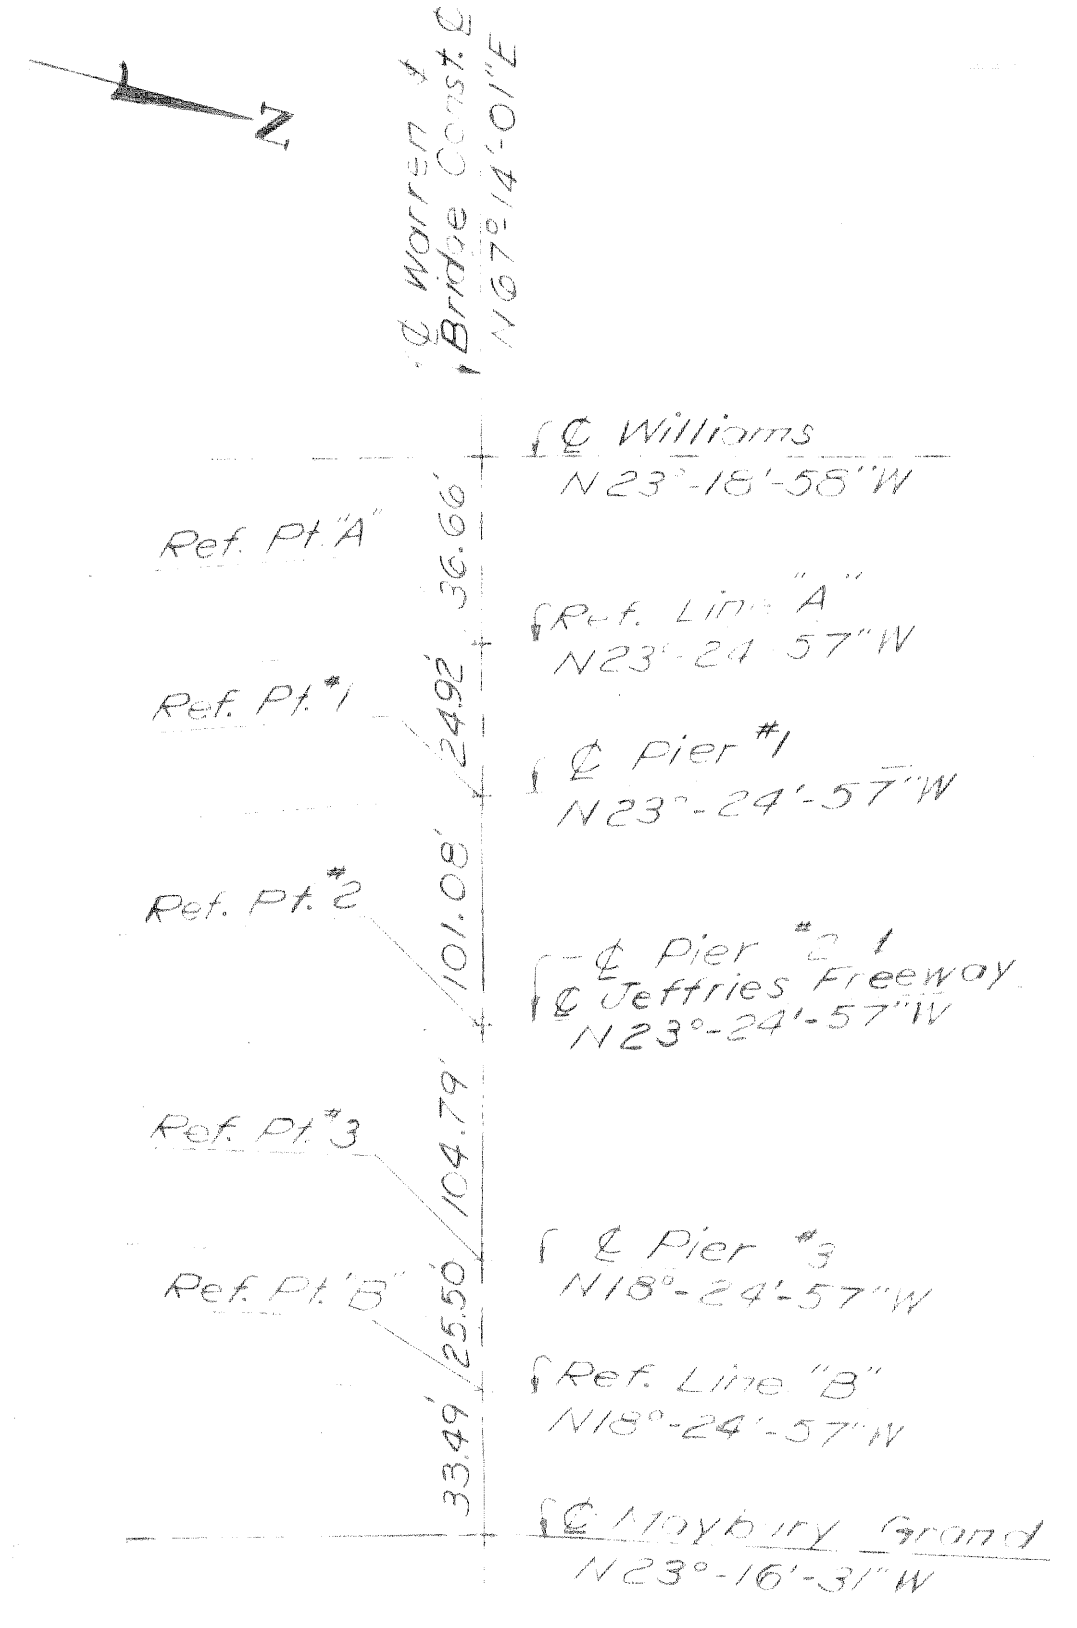 N
℄ Warren &
Bridge Const. ℄
N67°-14'-01"E
℄ Williams
N23°-18'-58"W
36.66'
Ref. Pt. "A"
Ref. Line "A"
N23°-24'-57"W
24.92'
Ref. Pt. #1
℄ Pier #1
N23°-24'-57"W
101.08'
Ref. Pt. #2
℄ Pier #2 &
℄ Jeffries Freeway
N23°-24'-57"W
104.79'
Ref. Pt. #3
℄ Pier #3
N18°-24'-57"W
25.50'
Ref. Pt. "B"
Ref. Line "B"
N18°-24'-57"W
33.49'
℄ Maybury Grand
N23°-16'-31"W